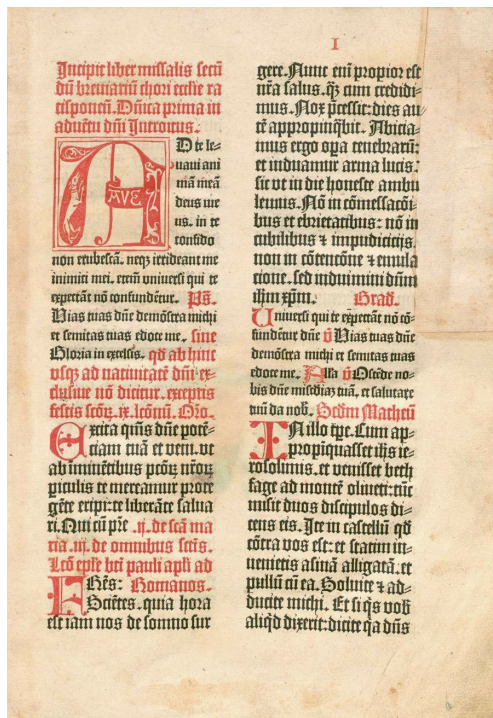 I
Incipit liber missalis secū
dū breviariū chori ecclīe ra
tisponeñ. Dñica prima in
adventu dñi Introitus.
AVE
D te le⸗
vavi ani
mā meā
deus me
us. in te
confido
non erubescā. neqꝫ irrideant me
inimici mei. etem̄ universi qui te
expectāt nō confundētur. Ps.
Vias tuas dn̄e demōstra michi
et semitas tuas edoce me. sine
Gloria in excelsis. qd ab hinc
vsqꝫ ad nativitatē dn̄i ex⸗
clusive nō dicitur. exceptis
festis sctōꝝ. ix. lcōnū. Oro.
Excita qn̄s dn̄e potē⸗
ciam tuā et veni. vt
ab īminētibus pctōꝝ nr̄oꝝ
ꝑiculis te mereamur prote
gēte eripi: te liberāte salva
ri. Qui cū pr̄e .ij. de scā ma
ria .iij. de omnibus sctīs.
Lcō epl̄e btī pauli apl̄i ad
FRēs: Romanos.
Scīetes. quia hora
est iam nos de somno sur
gere. Nunc eni ꝓpior est
nr̄a salus. q̄ꝫ cum credidi⸗
mus. Nox p̄cessit: dies au⸗
tē appropinq̄bit. Abicia⸗
mus ergo oꝑa tenebrarū:
et induamur arma lucis:
sic vt in die honeste ambu
lemus. Nō in cōmessacōi⸗
bus et ebrietatibus: nō in
cubilibus ⁊ impudicicijs
non in cōtencōne ⁊ emula
cione. sed induimini dn̄m
ihm̄ xp̄m. Grad.
Universi qui te expectāt nō cō⸗
fundētur dn̄e ℣ Vias tuas dn̄e
demōstra michi et semitas tuas
edoce me. Alla ℣ Ostēde no⸗
bis dn̄e misc̄diaꝫ tuā. et salutare
tuū da nob̄. Scd̄m Matheū
IN illo tp̄e. Cum ap⸗
propīquasset ihs̄ ie⸗
rosolimis. et venisset beth
fage ad montē oliveti: tūc
misit duos discipulos di⸗
cens eis. Ite in castellū qd̄
cōtra vos est: et statim in⸗
venietis asinā alligatā. et
pullū cū ea. Solvite ⁊ ad⸗
ducite michi. Et si q̄s vob̄
aliq̄d dixerit: dicite q̄a dn̄s